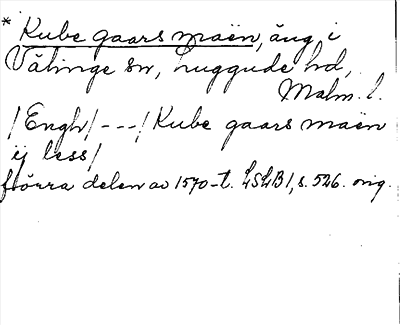 * Kube gaars maen, äng i
Välinge sn, Luggude hd,
Malm. l.
/Engh/ ---/ Kube gaars maen
ij less/
förra delen av 1570-t. LSLB 1, s. 526. orig.